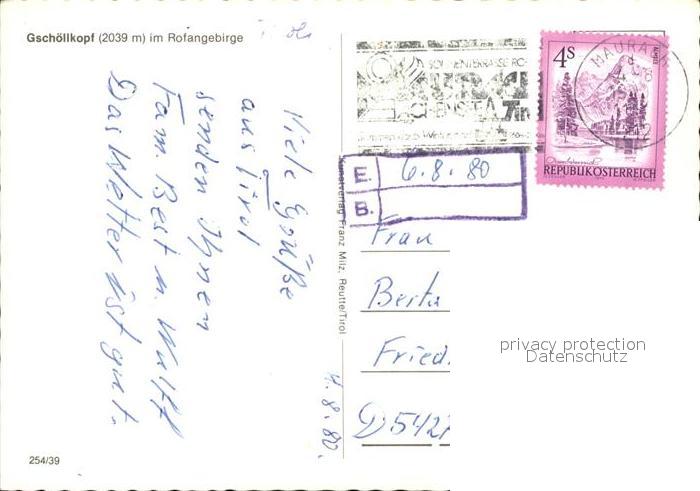 Gschöllkopf (2039 m) im Rofangebirge
Viele Grüße
aus Tirol
senden Ihnen
Fam. Best u. Wulff
Das Wetter ist gut.
4.8.80.
254/39
Kunstverlag Franz Milz, Reutte/Tirol
SONNENTERRASSE RO
MAURA
4S
REPUBLIK ÖSTERREICH
E. 6.8.80
B.
Frau
Berta
Fried.
D 542
privacy protection
Datenschutz